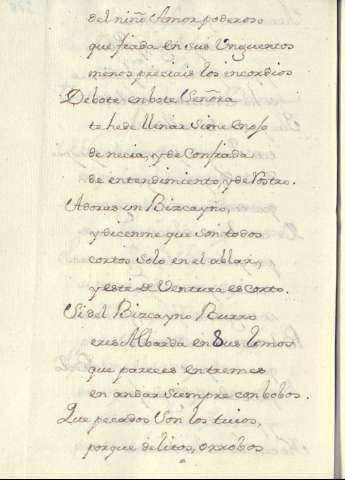 del niño Amor poderoso
que fiada en sus Unguentos
menos preciais los incordios
De bote en bote Señora
te he de llenar si me enojo
de necia, y de Confiada
de entendimiento, y de Rostro.
Adoras un Bizcayno,
y dicenme que son todos
cortos solo en el ablar,
y este de Ventura es corto.
Si del Bizcayno Burro
eres Albarda en Sus lomos
que pareces entremes
en andar siempre con bobos.
Que pecados son los tuios,
porque delitos, o robos